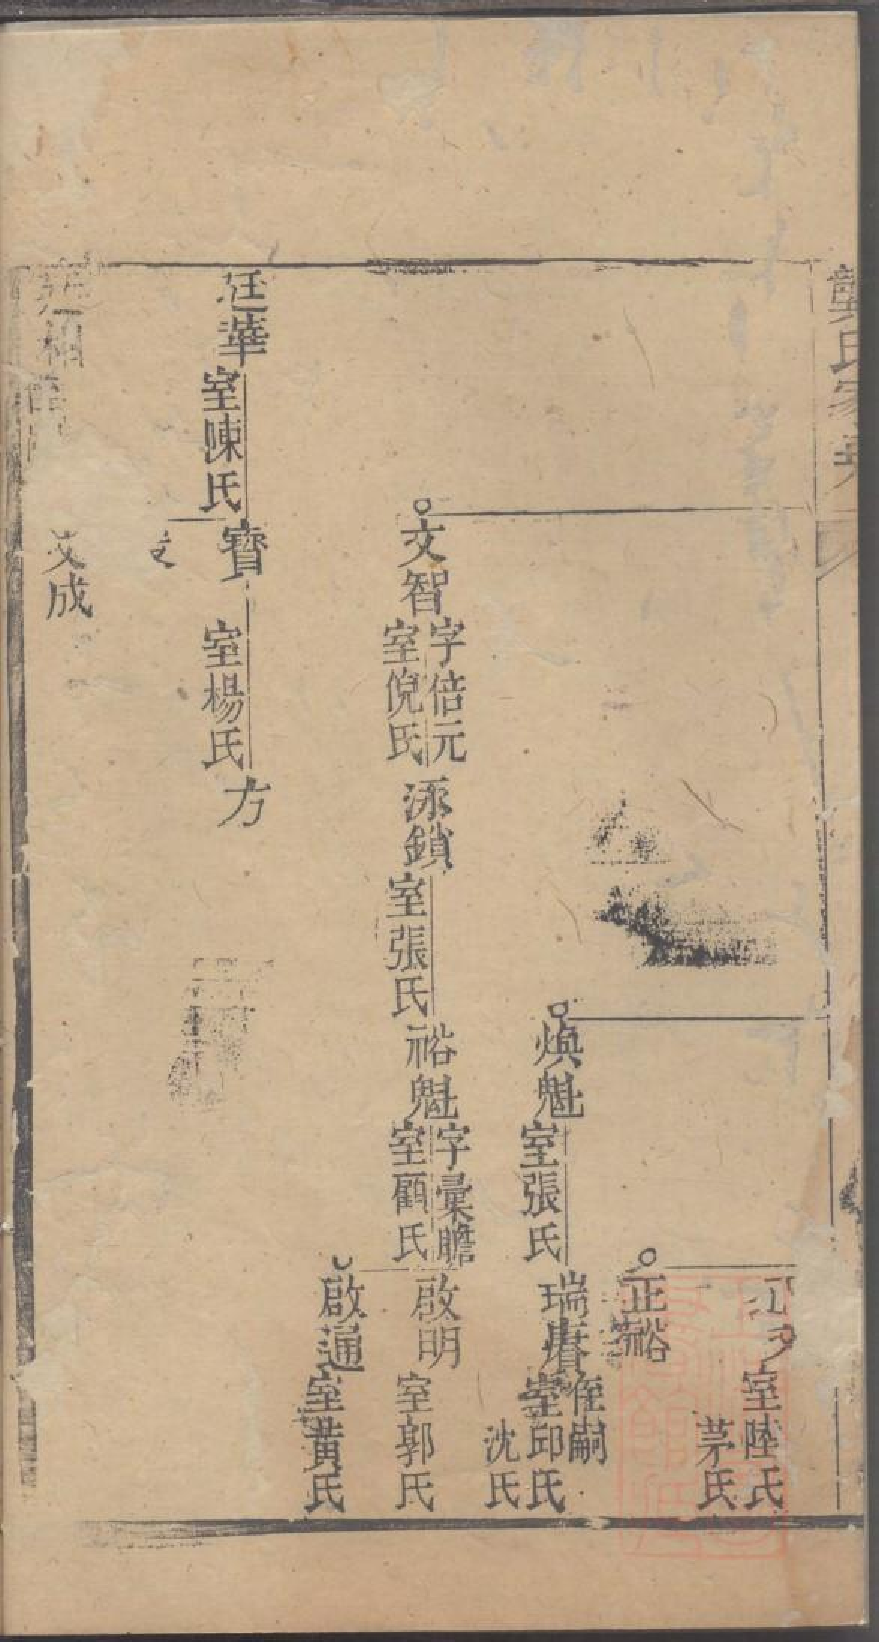 龔氏家
室陸氏
茅氏
正裕
煥魁
室張氏
瑞
侄嗣
室邱氏
沈氏
文智
字倍元
室倪氏
泳鎖
室張氏
裕魁
字彙瞻
室顧氏
啟明
室郭氏
啟通
室黃氏
廷華
室陳氏
寶
室楊氏
方
文成